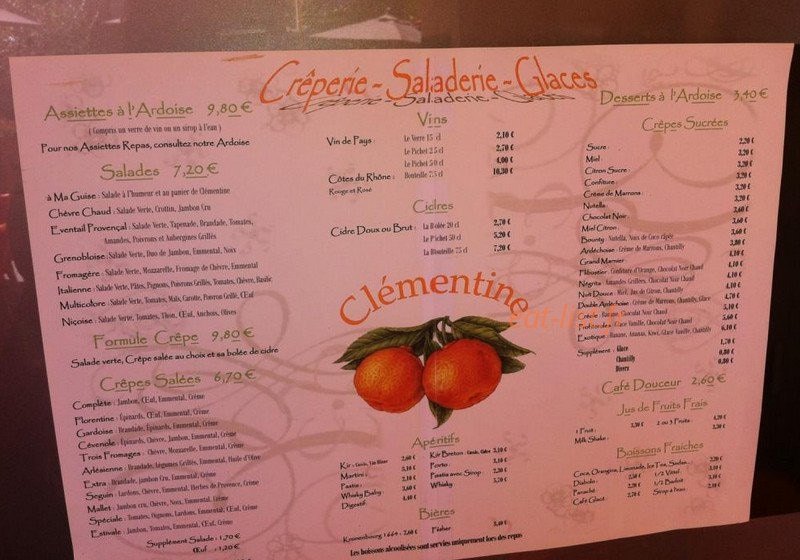 Crêperie - Saladerie - Glaces
Assiettes à l'Ardoise 9,80 €
( Compris un verre de vin ou un sirop à l'eau )
Pour nos Assiettes Repas, consultez notre Ardoise
Salades 7,20 €
à Ma Guise : Salade à l'humeur et au panier de Clémentine
Chèvre Chaud : Salade Verte, Crottin, Jambon Cru
Eventail Provençal : Salade Verte, Tapenade, Brandade, Tomates,
Amandes, Poivrons et Aubergines Grillés
Grenobloise : Salade Verte, Duo de Jambon, Emmental, Noix
Fromagère : Salade Verte, Mozzarelle, Fromage de Chèvre, Emmental
Italienne : Salade Verte, Pâtes, Pignons, Poivrons Grillés, Tomates, Chèvre, Basilic
Multicolore : Salade Verte, Tomates, Maïs, Carotte, Poivron Grillé, Œuf
Niçoise : Salade Verte, Tomates, Thon, Œuf, Anchois, Olives
Formule Crêpe 9,80 €
Salade verte, Crêpe salée au choix et sa bolée de cidre
Crêpes Salées 6,70 €
Complète : Jambon, Œuf, Emmental, Crème
Florentine : Épinards, Œuf, Emmental, Crème
Gardoise : Brandade, Épinards, Emmental, Crème
Cévenole : Épinards, Chèvre, Jambon, Emmental, Crème
Trois Fromages : Chèvre, Mozzarelle, Emmental, Crème
Arlésienne : Brandade, Légumes Grillés, Emmental, Huile d'Olive
Extra : Brandade, Jambon Cru, Emmental, Crème
Seguin : Lardons, Chèvre, Emmental, Herbes de Provence, Crème
Mallet : Jambon cru, Chèvre, Noix, Emmental, Crème
Spéciale : Tomates, Oignons, Lardons, Emmental, Œuf, Crème
Estivale : Jambon, Tomates, Emmental, Œuf, Crème
Supplément Salade : 1,70 €
Œuf : 1,20 €
Vins
Vin de Pays : Le Verre 15 cl 2,10 €
Le Pichet 25 cl 2,70 €
Le Pichet 50 cl 4,00 €
Côtes du Rhône : Bouteille 75 cl 10,30 €
Rouge et Rosé
Cidres
Cidre Doux ou Brut : La Bolée 20 cl 2,70 €
Le Pichet 50 cl 5,20 €
La Bouteille 75 cl 7,20 €
Clémentine
Apéritifs
Kir : 2,60 €
Martini :
Pastis :
Whisky Baby :
Digestif :
Kir Breton :
Porto :
Pastis avec Sirop :
Whisky
Bières
Kronenbourg 1664 :
Les boissons alcoolisées sont servies uniquement lors des repas
Desserts à l'Ardoise 3,40 €
Crêpes Sucrées
Sucre : 2,20 €
Miel 3,20 €
Citron Sucre : 3,20 €
Confiture : 3,20 €
Crème de Marrons : 3,20 €
Nutella :
Chocolat Noir :
Miel Citron
Bounty : Nutella, Noix de Coco râpée
Ardéchoise : Crème de Marrons, Chantilly
Grand Marnier :
Flibustier : Confiture d'Orange, Chocolat Noir Chaud
Négrita : Amandes Grillées, Chocolat Noir Chaud
Nuit Douce : Miel, Jus de Citron, Chantilly
Double Ardéchoise : Crème de Marrons, Chantilly, Glace
Chocolat Noir Chaud
Glace Vanille, Chocolat Noir Chaud
Exotique : Banane, Ananas, Kiwi, Glace Vanille, Chantilly 6,10 €
Supplément : Glace 1,70 €
Chantilly 0,80 €
Divers 0,80 €
Café Douceur 2,60 €
Jus de Fruits Frais
1 Fruit :
2 ou 3 Fruits :
Milk Shake :
Boissons Fraîches
Coca, Orangina, Limonade, Ice Tea,
Diabolo :
Panaché
Café Glacé :
1/2 Vittel :
1/2 Badoit :
Sirop à l'eau :